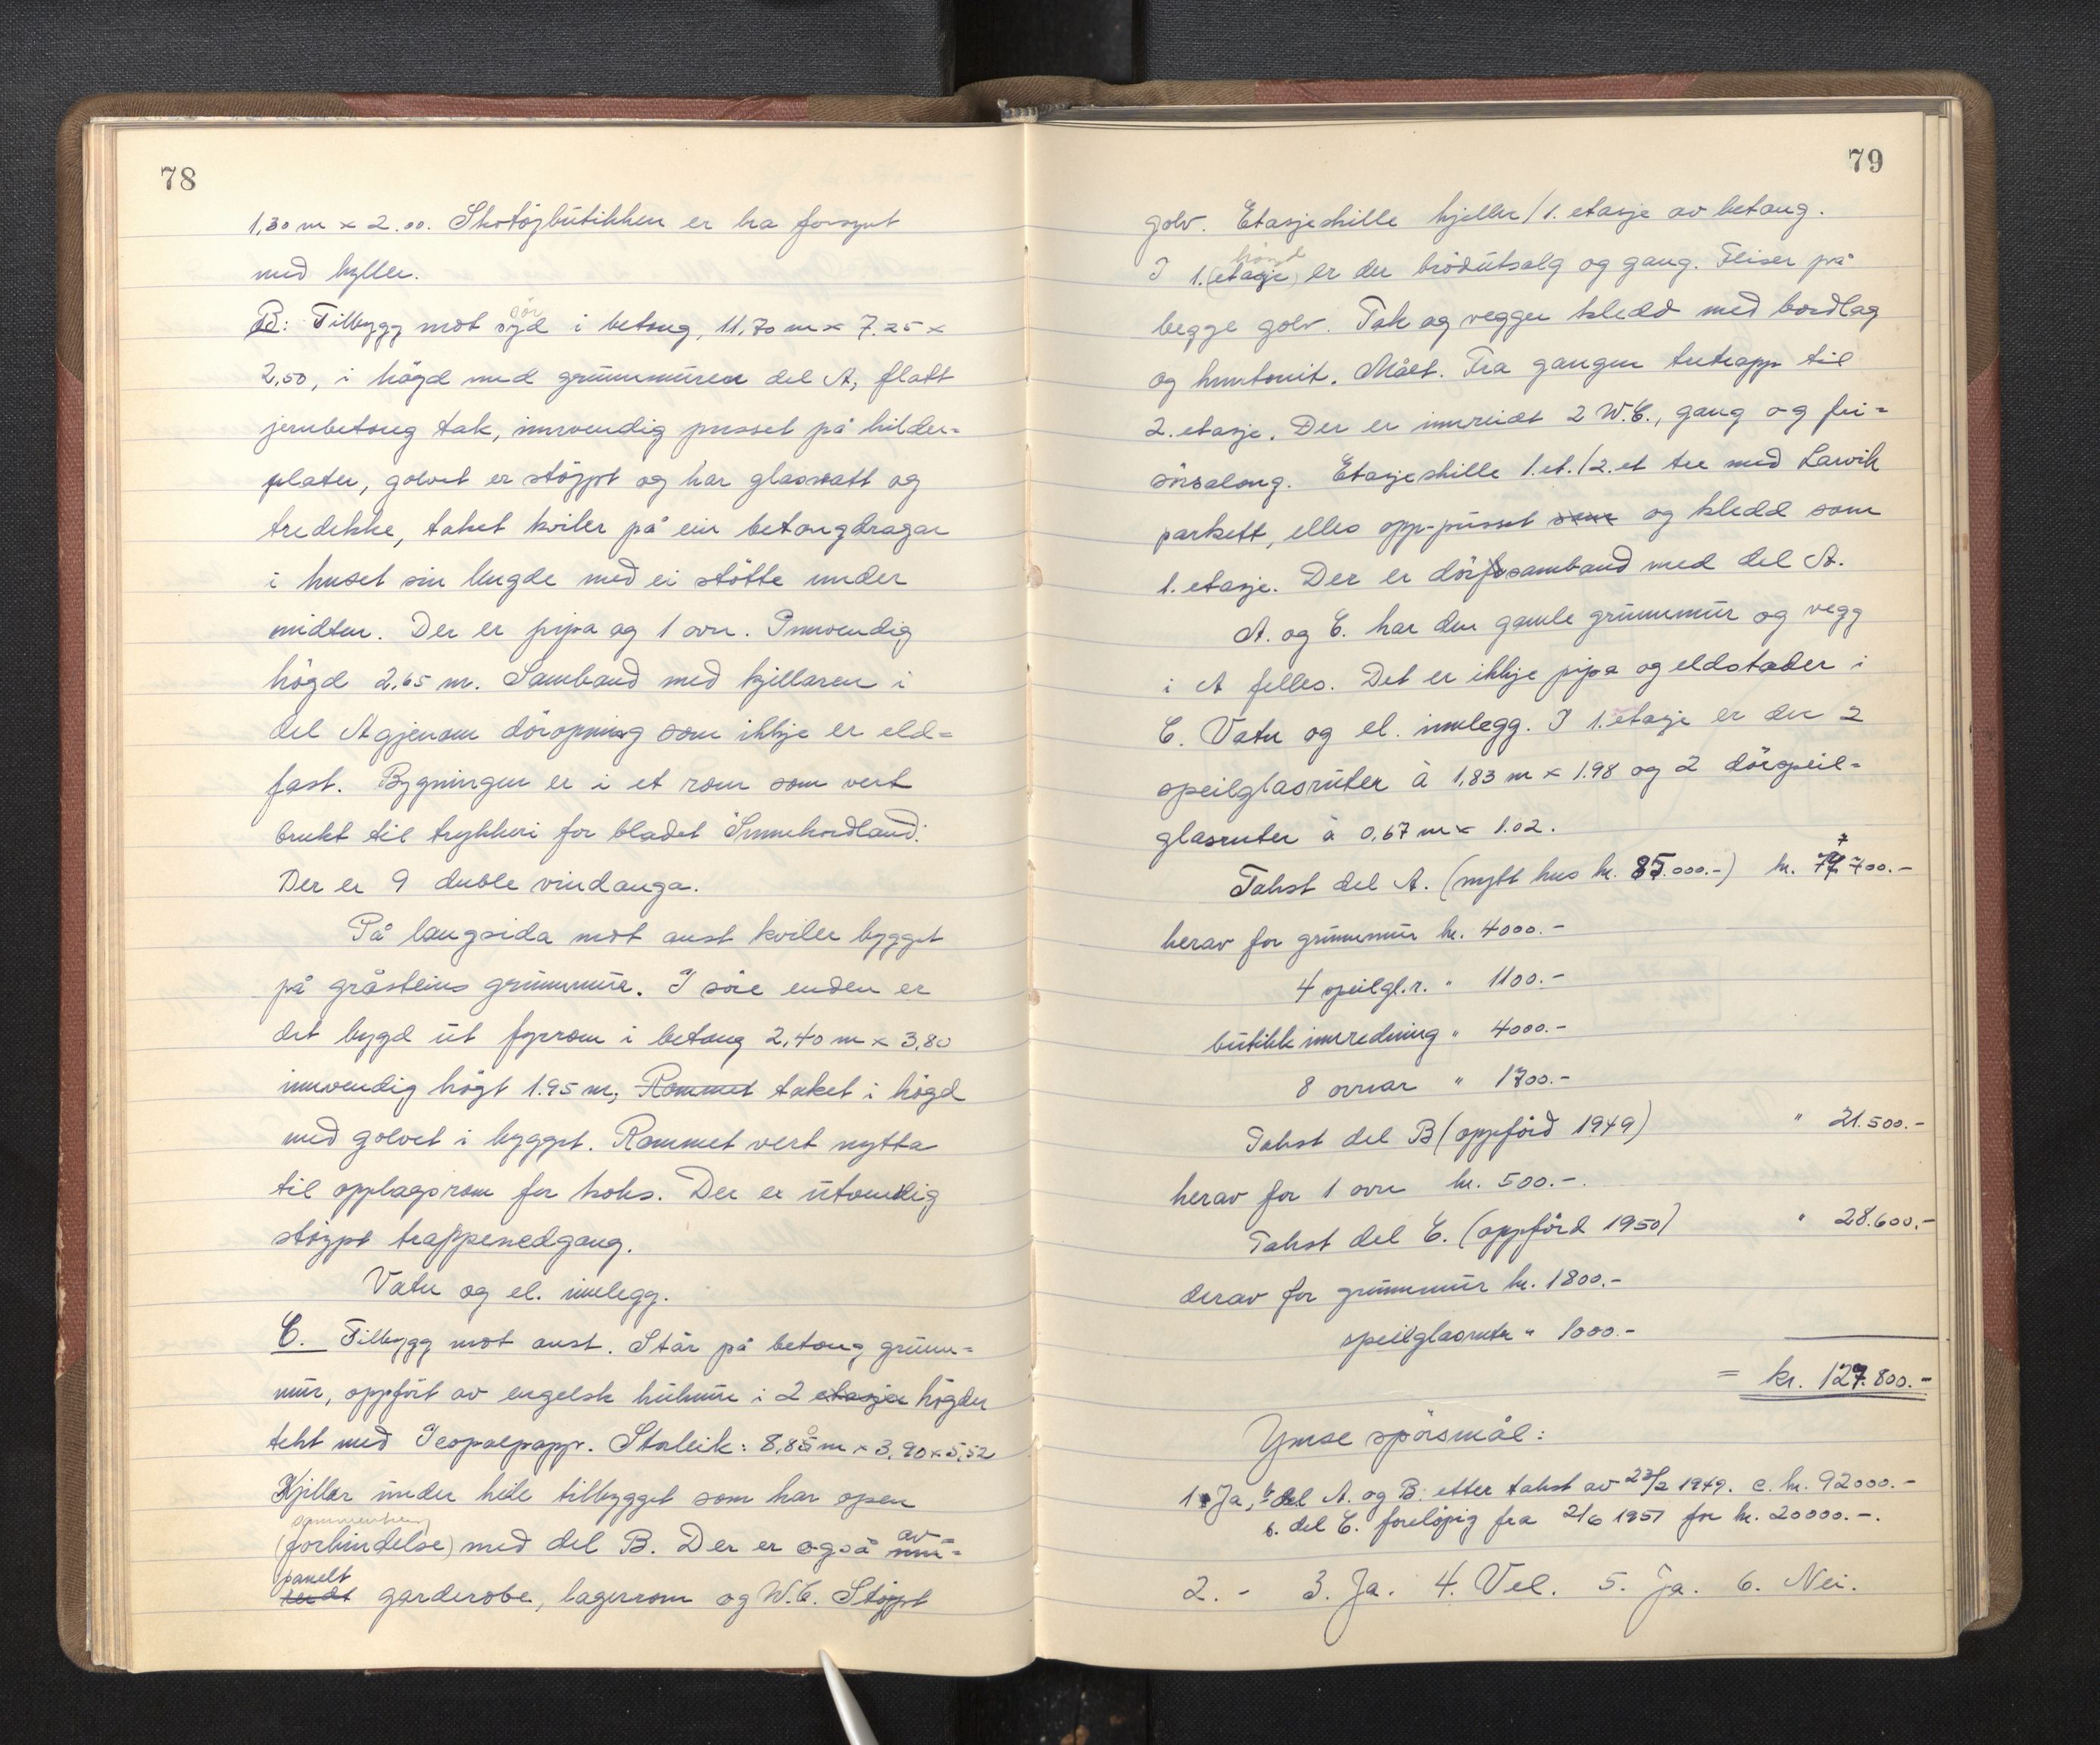 78
1,30 m x 2.00. Skotöjbutikken er bra forsynt
med hyller.
B: Tilbygg mot syd sör i betong, 11,70 m x 7.25 x
2,50, i högd med grunnmuren del A, flatt
jernbetong tak, innvendig pusset på bilder-
plater, golvet er stöypt og har glasvatt og
tredekke, taket kviler på ein betongdragar
i huset sin lengde med ei stötte under
midten. Der er pipa og 1 ovn. Innvendig
högd 2.65 m. Samband med kjellaren i
del A gjenom döropning som ikkje er eld-
fast. Bygningen er i et rom som vert
brukt til trykkeri for bladet "Sunnhordland".
Der er 9 duble vindauga.
På langsida mot aust kviler bygget
på gråsteins grunnmur. I söre enden er
det bygd ut fyrrom i betong 2,40 m x 3,80
innvendig högt 1.95 m, Rommet taket i högd
med golvet i bygget. Rommet vert nytta
til opplagsrom for koks. Der er utvendig
stöypt trappenedgang.
Vatn og el. innlegg.
C. Tilbygg mot aust. Står på betong grunn-
mur, oppfört av engelsk hulmur i 2 etasjer högder
tekt med Icopalpapp. Storleik: 8,85 m x 3,90 x 5,52
Kjellar under heile tilbygget som har open
sammenheng
(forbindelse) med del B. Der er også av inn-
panelt
redet garderobe, lagerrom og W.C. Stöypt
79
golv. Etasjeskille kjeller / 1. etasje av betong.
högd
I 1. (etasje) er der brödutsalg og gang. Fliser på
begge golv. Tak og vegger kledd med bordlag
og huntonit. Målt. Fra gangen tretrapp til
2. etasje. Der er innreidt 2 W.C., gang og fri-
sörsalong. Etasjeskille 1. et. / 2. et tre med Larvik
parkett, elles opp-pusset som og kledd som
1. etasje. Der er dörsamband med del A.
A. og C. har den gamle grunnmur og vegg
i A felles. Det er ikkje pipa og eldstader i
C. Vatn og el. innlegg. I 1. etasje er der 2
speilglasruter à 1,83 m x 1.98 og 2 dörspeil-
glasruter à 0,67 m x 1.02.
Takst del A. (nytt hus kr. 85.000.-) kr. 77.700.-
herav for grunnmur kr. 4000.-
4 speilgl.r. " 1100.-
butikkinnredning " 4000.-
8 ovnar " 1700.-
Takst del B (oppförd 1949) " 21.500.-
herav for 1 ovn kr. 500.-.
Takst del C. (oppförd 1950) " 28.600.-
derav for grunnmur kr. 1800.-
speilglasruter " 1000.-
= kr. 127.800.-
Ymse spörsmål:
1. Ja, del A. og B. etter takst av 23/2 1949. c. kr. 92000.-
b. del C. foreløpig fra 2/6 1951 for kr. 20000.-.
2. - 3. Ja. 4. Vel. 5. Ja. 6. Nei.